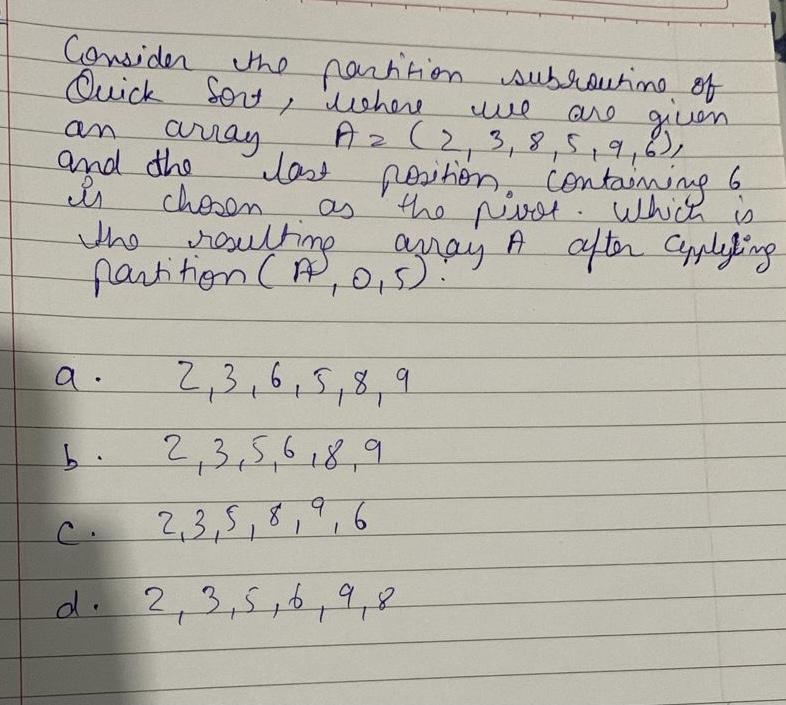 Consider the partition subroutine of
Quick Sort, where we are given
an array A = (2, 3, 8, 5, 9, 6),
and the last position containing 6
is chosen as the pivot. Which is
the resulting array A after applying
partition (A, 0, 5).
a. 2, 3, 6, 5, 8, 9
b. 2, 3, 5, 6, 8, 9
c. 2, 3, 5, 8, 9, 6
d. 2, 3, 5, 6, 9, 8